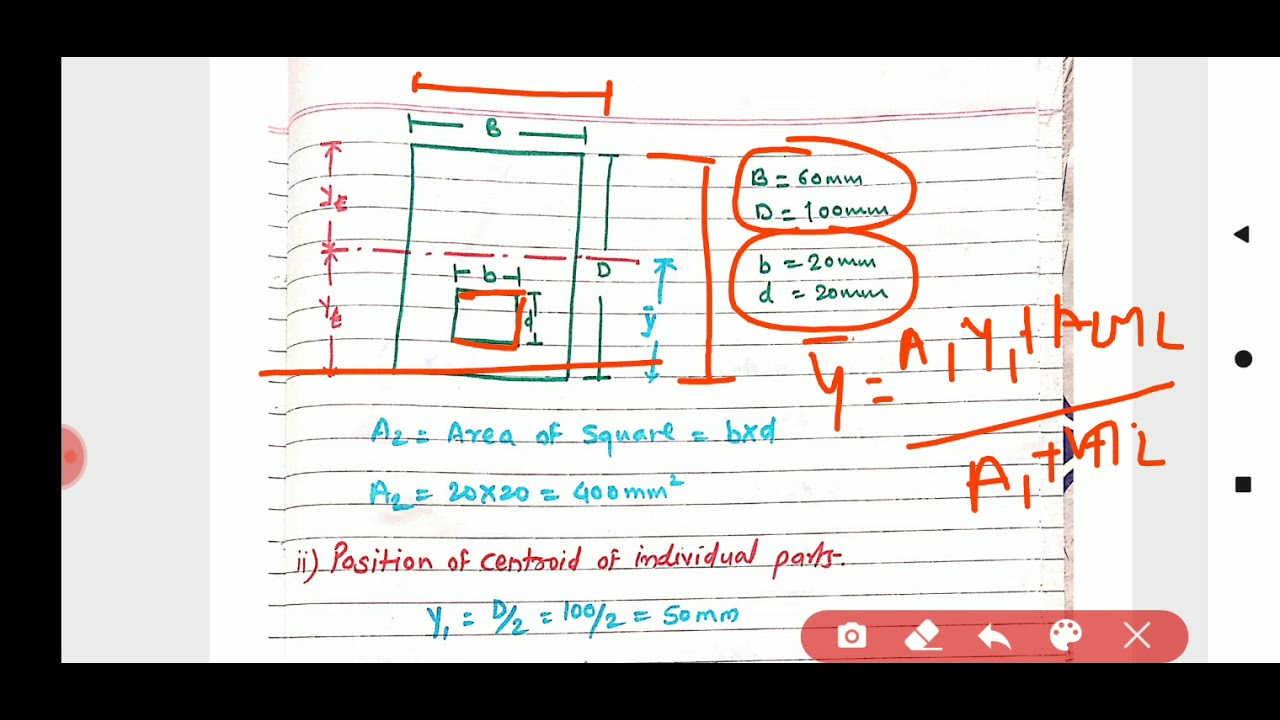 B
B = 60mm
D = 100mm
yt
b = 20mm
d = 20mm
D
b
d
yt
ȳ
ȳ = A1 Y1 +
A1 +
A2 = Area of Square = b×d
A2 = 20×20 = 400mm²
ii) Position of centroid of individual parts-
Y1 = D/2 = 100/2 = 50mm